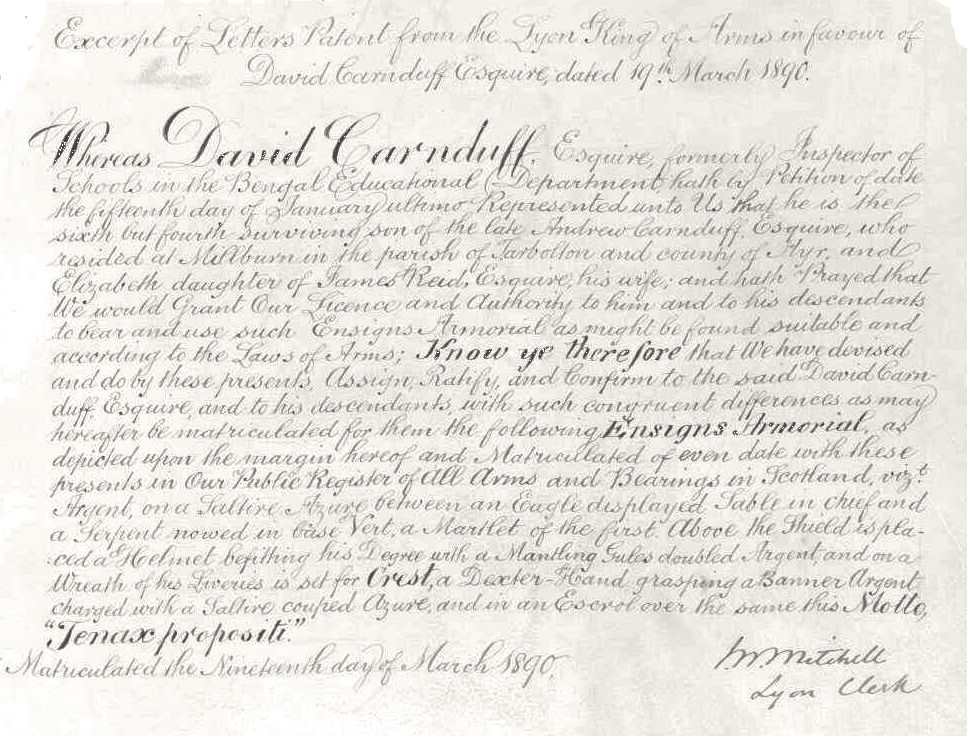 Excerpt of Letters Patent from the Lyon King of Arms in favour of
David Carnduff Esquire, dated 19th March 1890.
Whereas David Carnduff, Esquire, formerly Inspector of
Schools in the Bengal Educational Department, hath by Petition of date
the fifteenth day of January ultimo Represented unto Us that he is the
sixth but fourth surviving son of the late Andrew Carnduff, Esquire, who
resided at Millburn in the parish of Tarbolton and county of Ayr, and
Elizabeth daughter of James Reid, Esquire, his wife; and hath Prayed that
We would Grant Our Licence and Authority to him and to his descendants
to bear and use such Ensigns Armorial as might be found suitable and
according to the Laws of Arms; Know ye therefore that We have devised
and do by these presents, Assign, Ratify, and Confirm to the said David Carn-
duff, Esquire, and to his descendants, with such congruent differences as may
hereafter be matriculated for them the following Ensigns Armorial, as
depicted upon the margin hereof and Matriculated of even date with these
presents in Our Public Register of All Arms and Bearings in Scotland, vizt.
Argent, on a Saltire Azure between an Eagle displayed Sable in chief and
a Serpent nowed in base Vert, a Martlet of the first. Above the Shield is pla-
:ced a Helmet befitting his Degree with a Mantling Gules doubled Argent, and on a
Wreath of his Liveries is set for Crest, a Dexter-Hand grasping a Banner Argent
charged with a Saltire couped Azure, and in an Escrol over the same this Motto,
"Tenax propositi."
Matriculated the Nineteenth day of March 1890.
Mitchell
Lyon Clerk